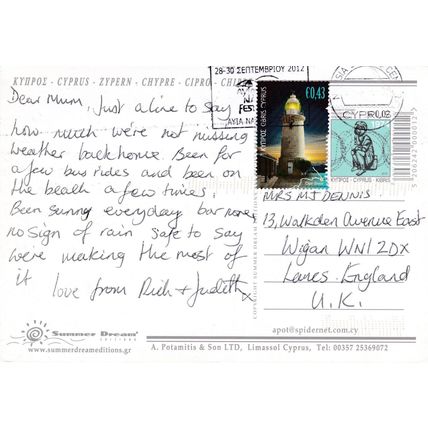 28-30 ΣΕΠΤΕΜΒΡΙΟΥ 2012
FEST
ΑΓΙΑ ΝΑ
ΚΥΠΡΟΣ - CYPRUS - ZYPERN - CHYPRE - CIPRO - CHI
€0,43
ΚΥΠΡΟΣ KIBRIS CYPRUS
CYPRUS
0,02
ΚΥΠΡΟΣ · CYPRUS · KIBRIS
5 206247 000012
Dear Mum, Just a line to say
how much we're not missing
weather back home. Been for
a few bus rides and been on
the beach a few times.
Been sunny everyday bar none
no Sign of rain safe to say
we're making the most of
it
love from Rich + Judith x
MRS MJ DENNIS
13, Walkden Avenue East
Wigan WN1 2DX
Lancs. England
U.K.
COPYRIGHT SUMMER DREAM EDITIONS
Summer Dream
EDITIONS
www.summerdreameditions.gr
apot@spidernet.com.cy
A. Potamitis & Son LTD, Limassol Cyprus, Tel: 00357 25369072